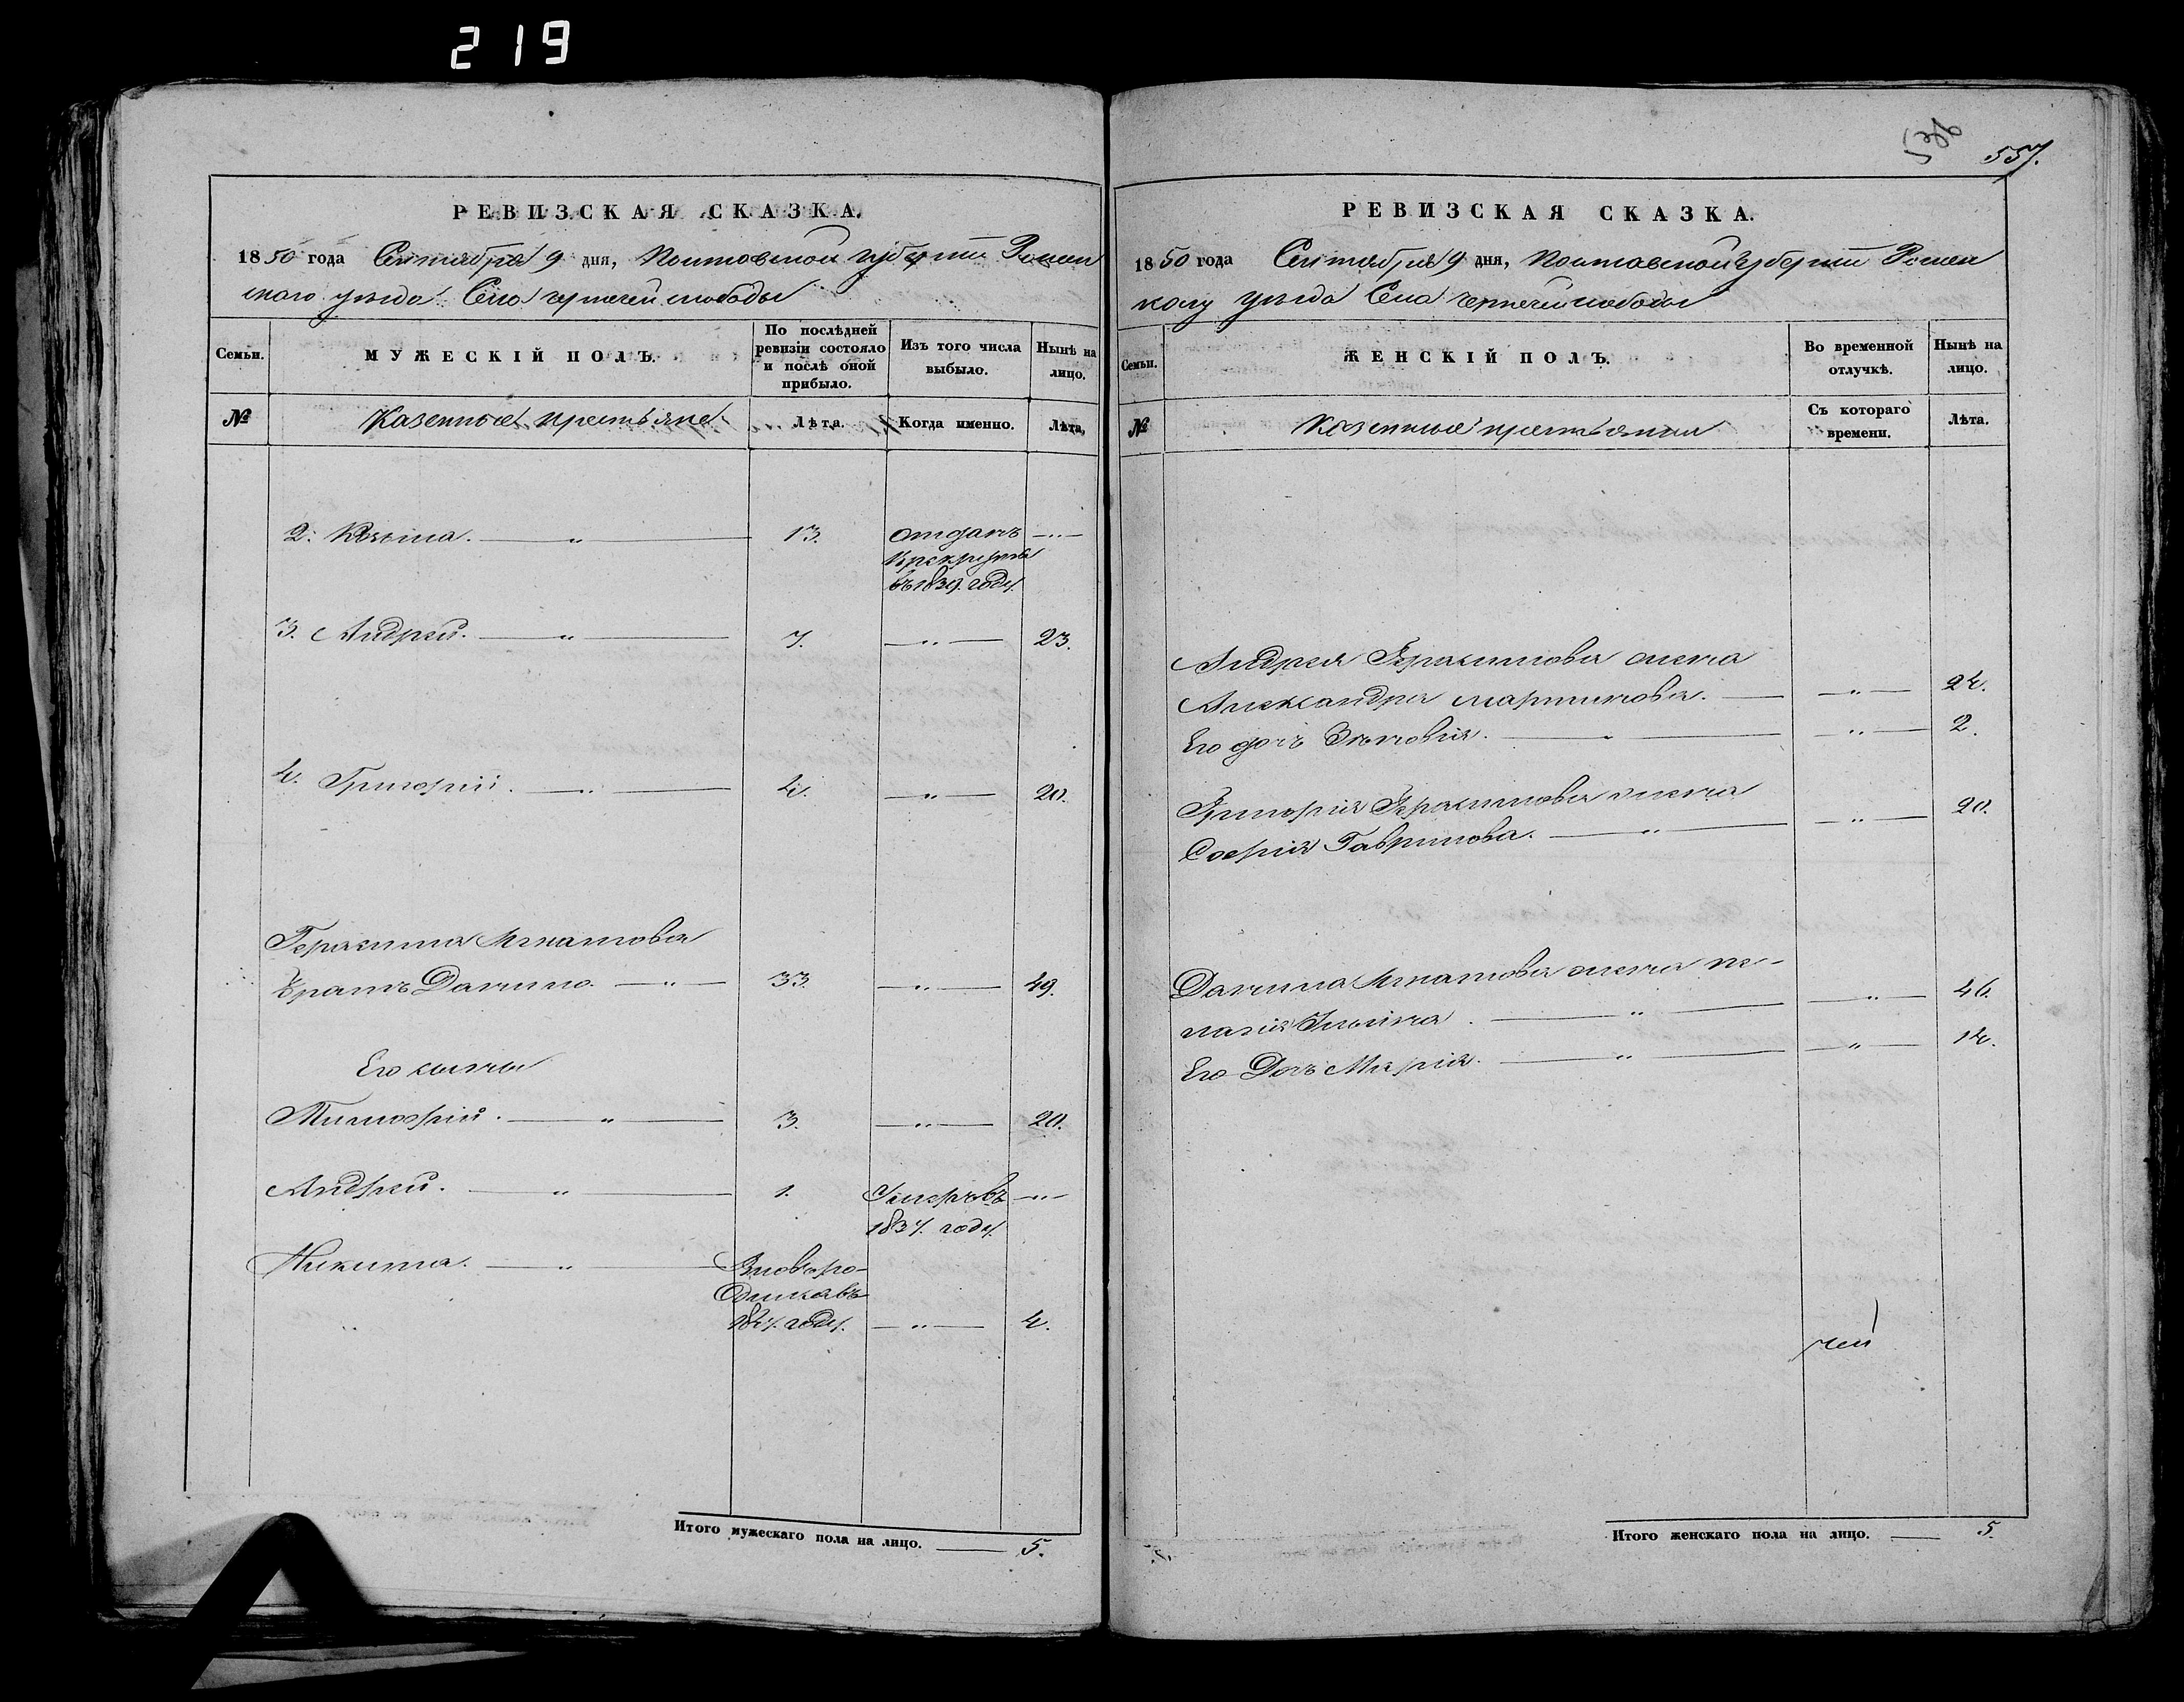 219
536
557.
РЕВИЗСКАЯ СКАЗКА.
1850 года Сентября 9 дня, Полтавской губернии Ромен
ского уезда Село чернечей слободы
Семьи.
МУЖЕСКІЙ ПОЛЪ.
По послѣдней ревизіи состояло и послѣ оной прибыло.
Изъ того числа выбыло.
Нынѣ на лицо.
№
Казенные крестьяне
Лѣта.
Когда именно.
Лѣта.
2. Козьма. — „ — 13. отданъ — „ —
в рекруты
въ 1839. году.
3. Андрей. — „ — 7. — „ — 23.
4. Григорій. — „ — 4. — „ — 20.
Герасима Игнатова
братъ Данило. — „ — 33. — „ — 49.
Его сыны
Тимофій. — „ — 3. — „ — 20.
Андрей. — „ — 1. Умеръ въ — „ —
1837. году.
Никита. — „ — Вновь ро-
дился въ
году. — „ — 4.
Итого мужескаго пола на лицо. — 5.
РЕВИЗСКАЯ СКАЗКА.
1850 года Сентября 9 дня, Полтавской губернии Ромен
кому уезда Села чернечей слободы
Семьи.
ЖЕНСКІЙ ПОЛЪ.
Во временной отлучкѣ.
Нынѣ на лицо.
№
Казенные крестьянки
Съ котораго времени.
Лѣта.
Андрея Герасимова жена
Александра мартинова. — — „ — 24.
Его дочь Зѣновія. — „ — — „ — 2.
Григорія Герасимова жена
Софія Гаврилова. — „ — — „ — 20.
Данила Игнатова жена пе-
лагія Ильина. — „ — — „ — 46.
Его Дочь Марія. — „ — — „ — 14.
чей
Итого женскаго пола на лицо. — 5.